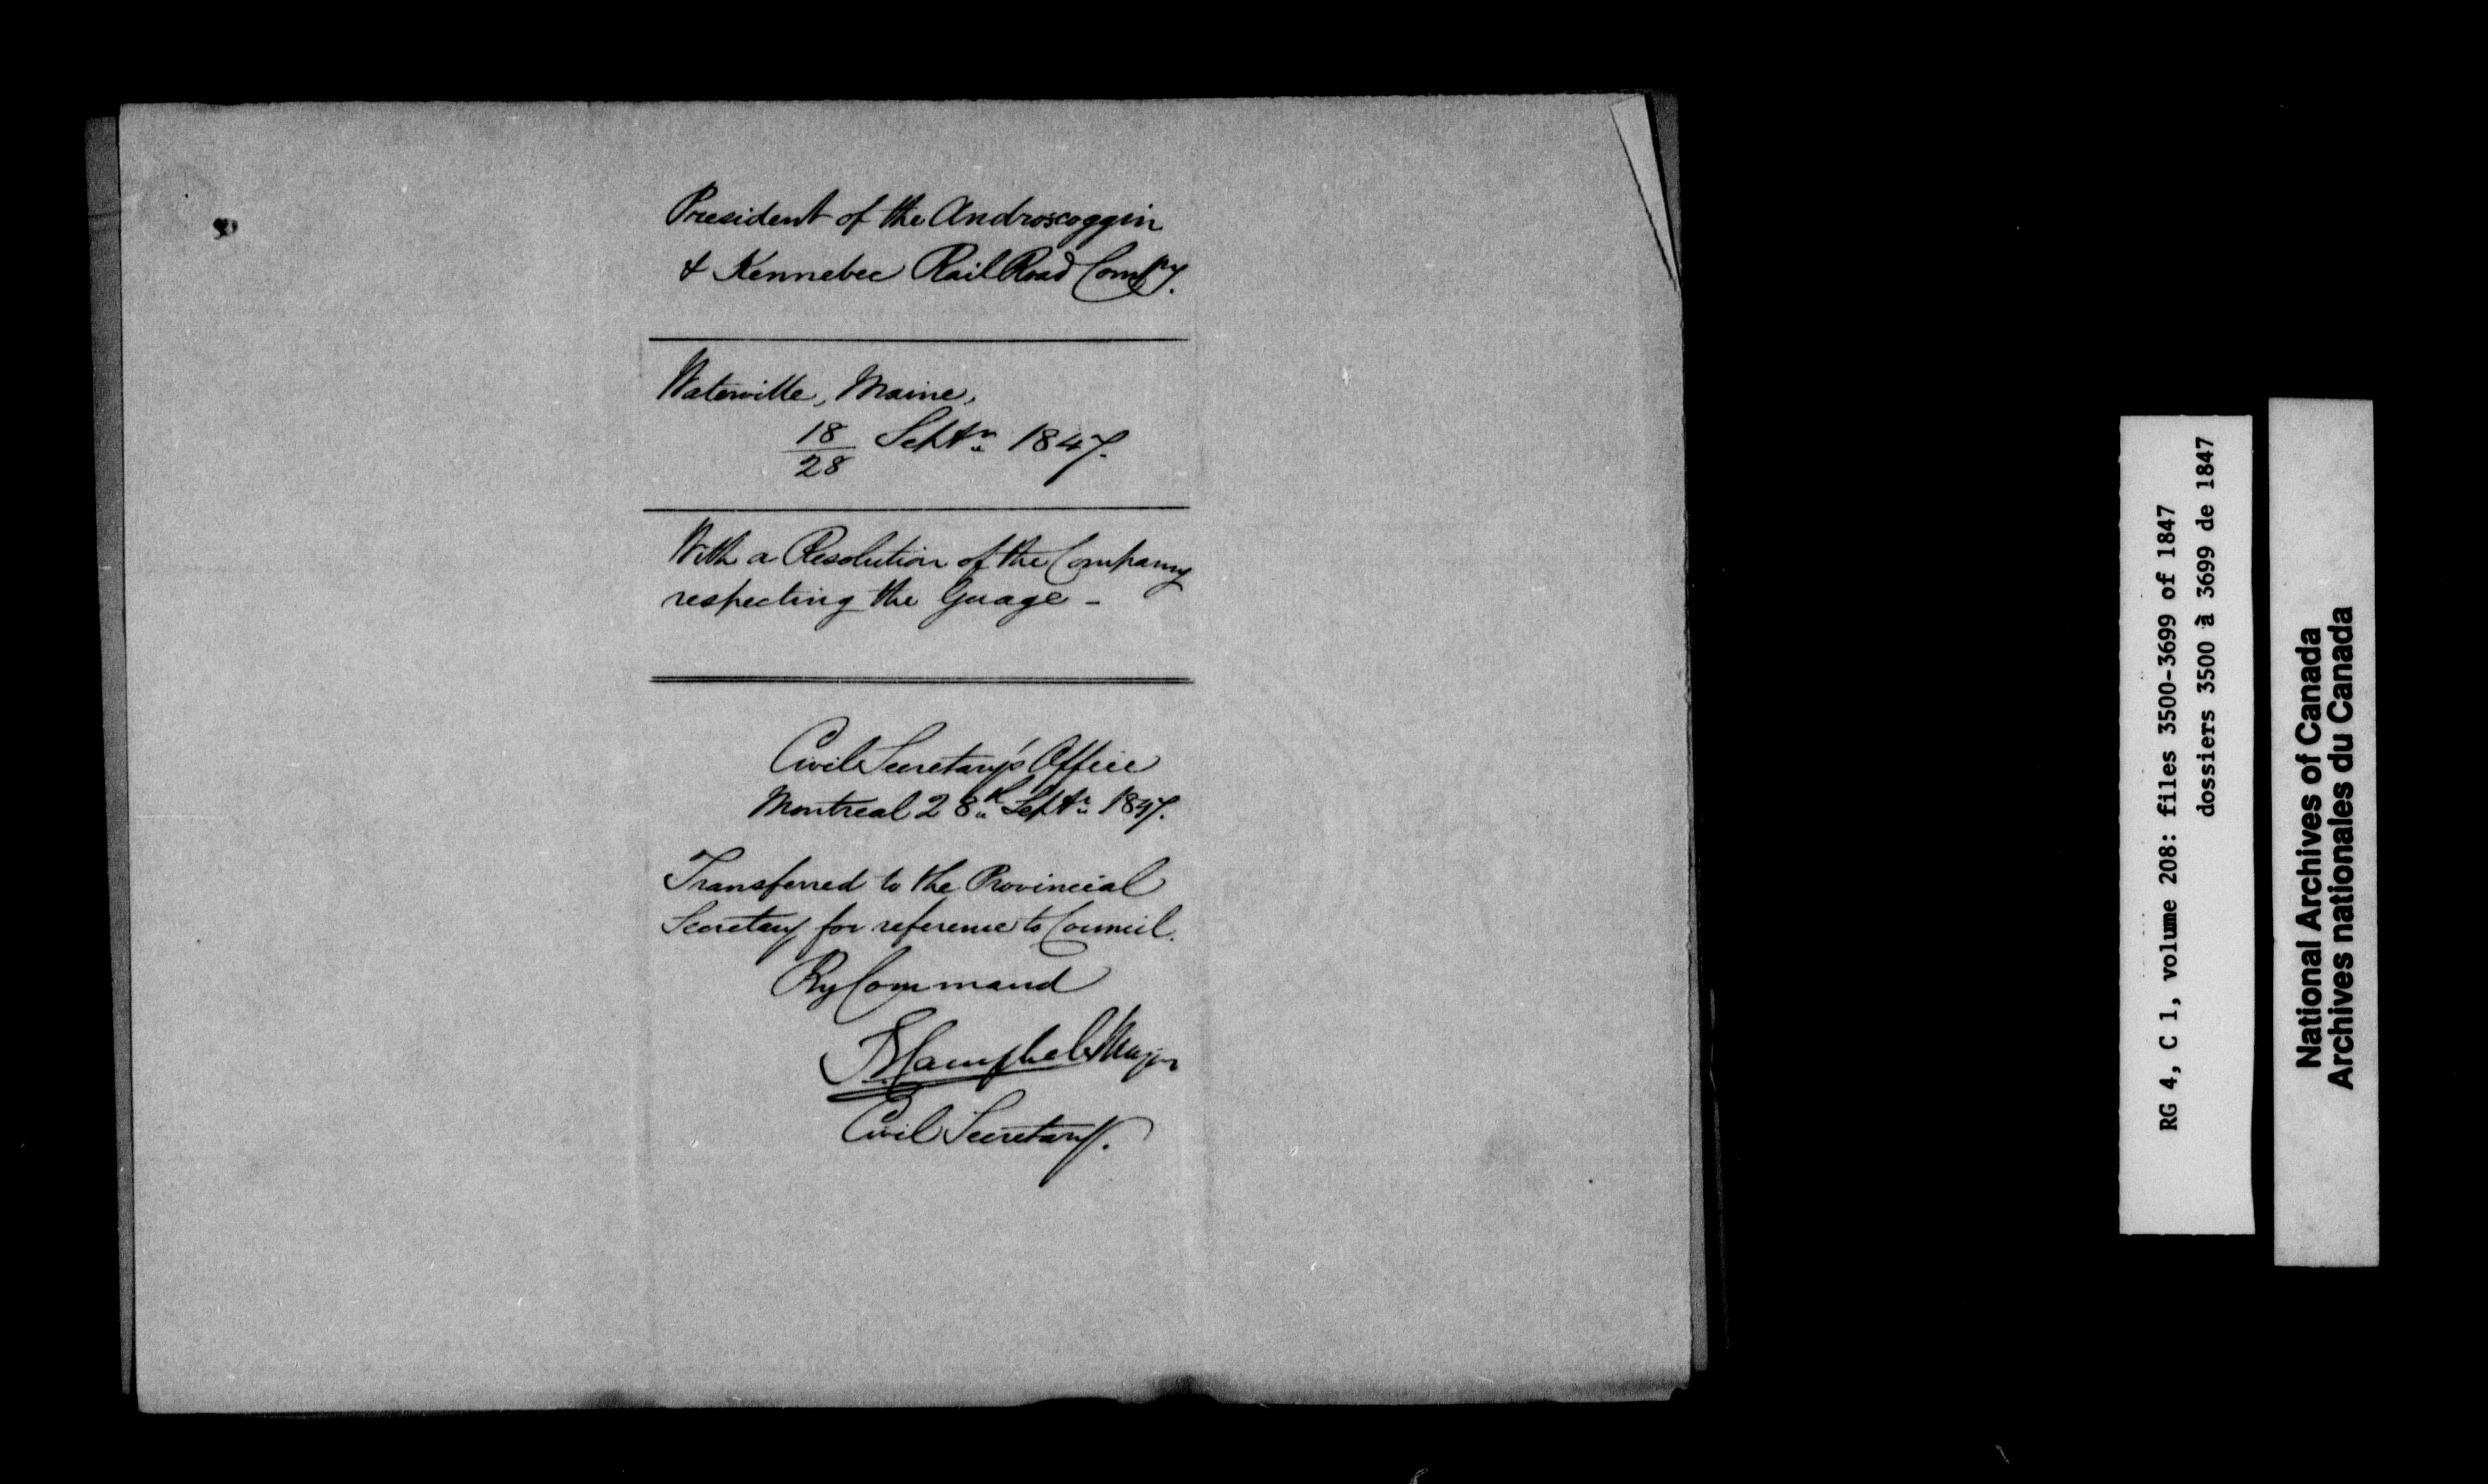 President of the Androscoggin
& Kennebec Rail Road Compy.
Waterville, Maine,
18/28 Septr. 1847.
With a Resolution of the Company
respecting the Guage -
Civil Secretary's Office
Montreal 28th Septr. 1847.
Transferred to the Provincial
Secretary for reference to Council.
By Command
Campbell Major
Civil Secretary.
RG 4, C 1, volume 208: files 3500-3699 of 1847
dossiers 3500 à 3699 de 1847
National Archives of Canada
Archives nationales du Canada